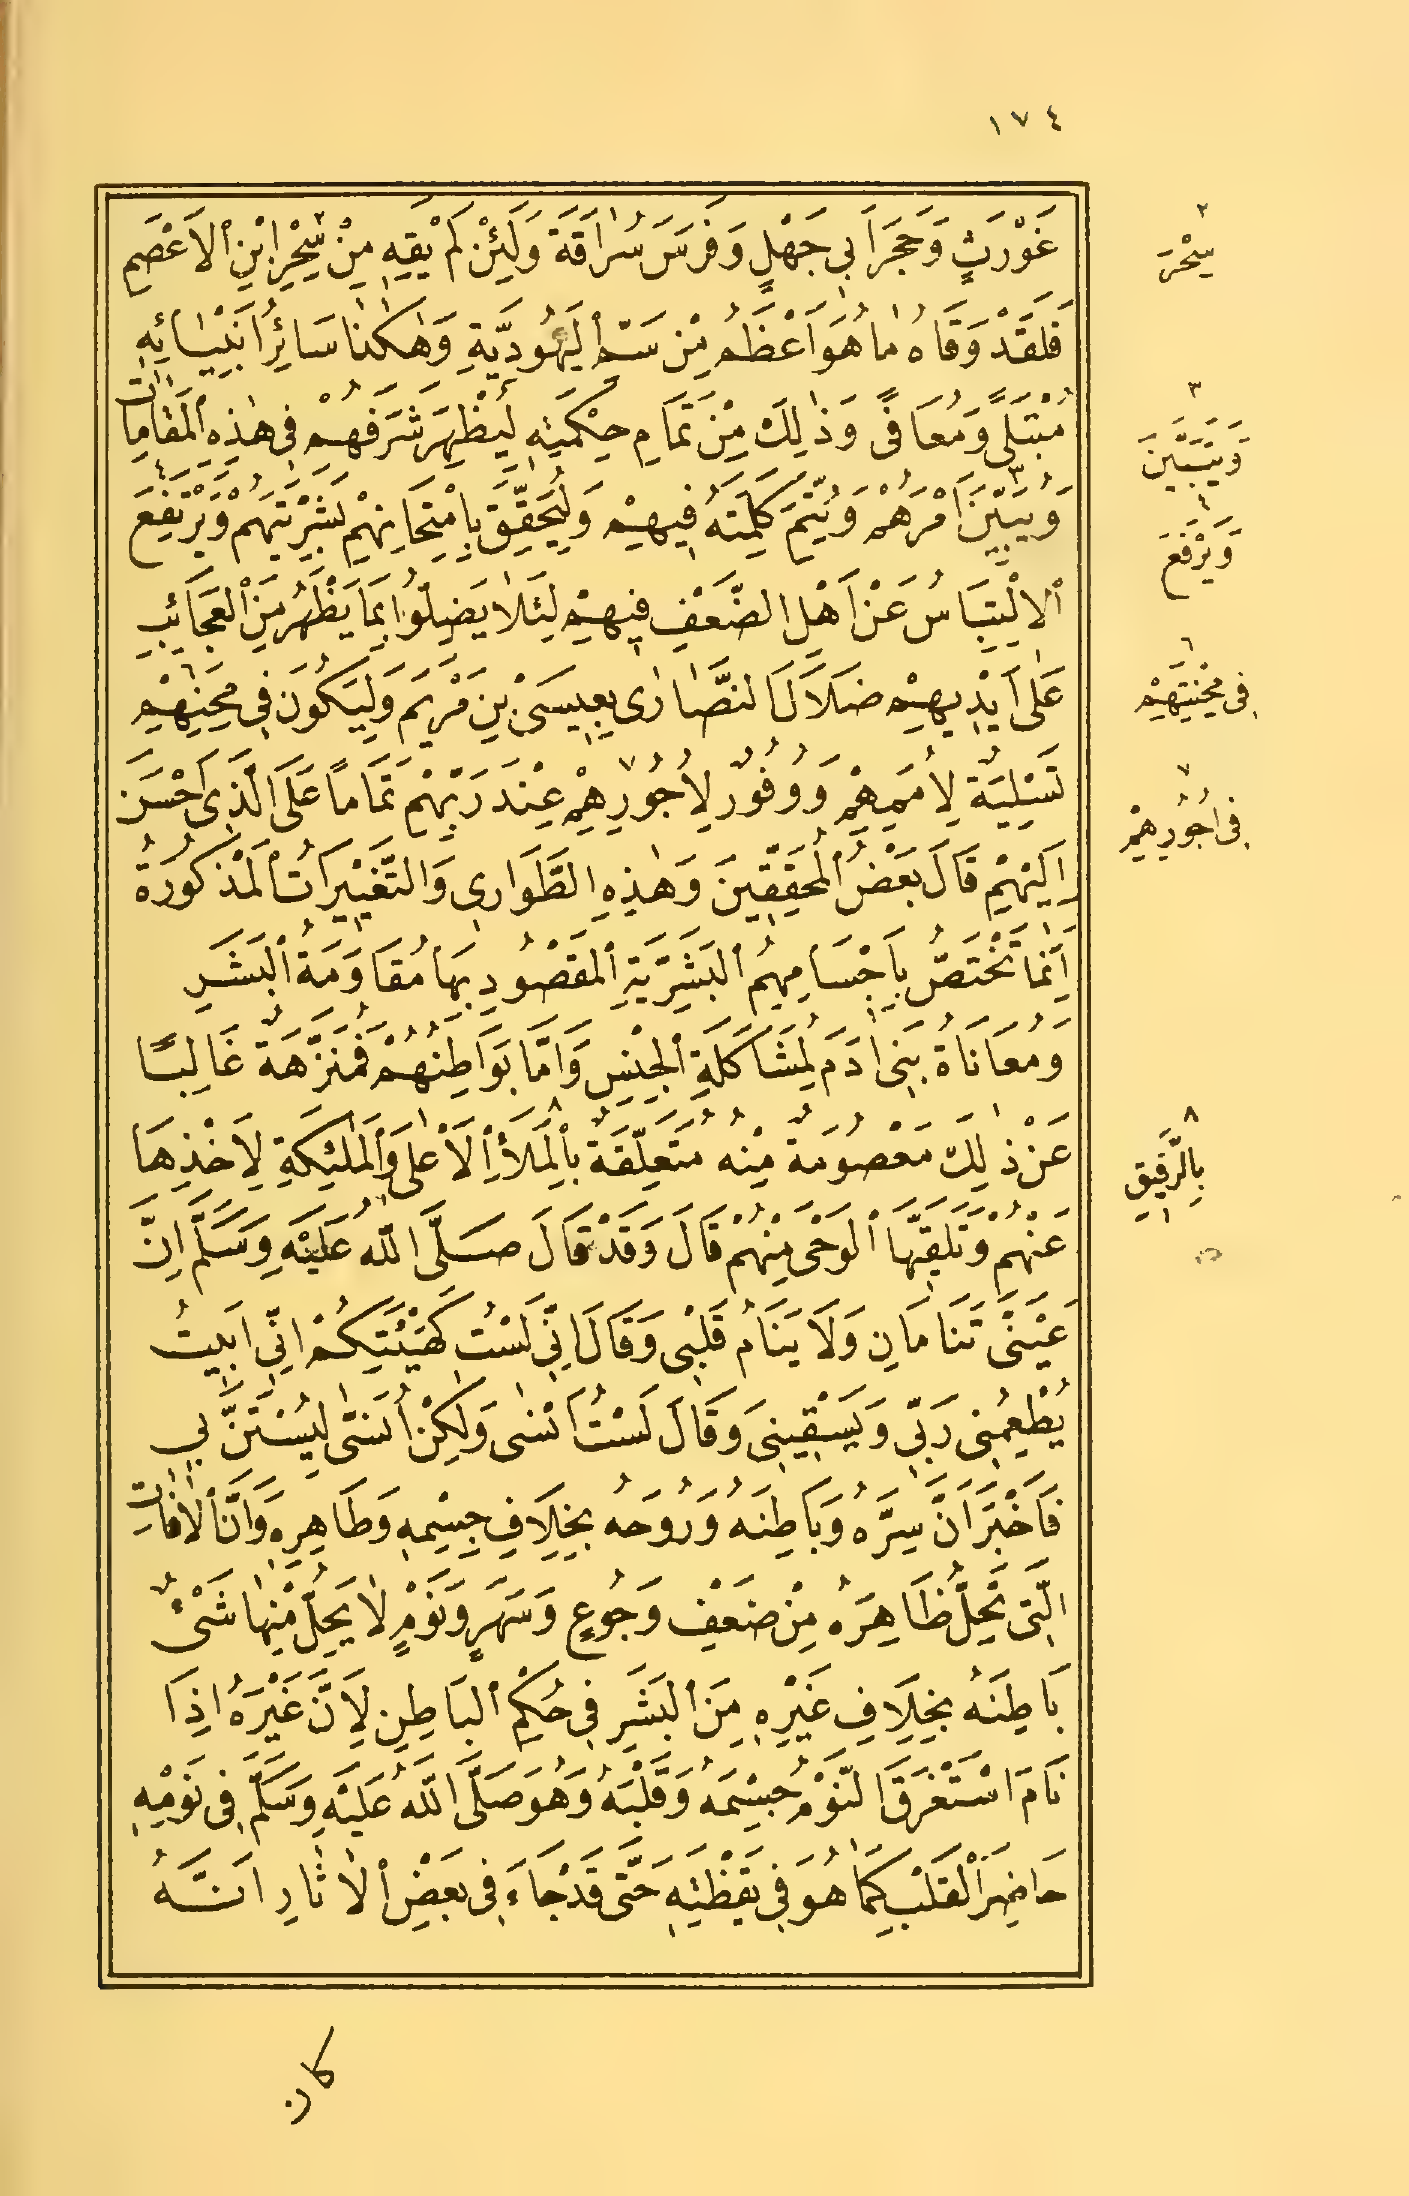 ١٧٤
غَوْرَثٍ وَحَجَرَ اَبِي جَهْلٍ وَفَرَسَ سُرَاقَةَ وَلَئِنْ لَمْ يَقِهِ مِنْ ٢سِحْرِ ابْنِ الْاَعْصَمِ
فَلَقَدْ وَقَاهُ مَا هُوَ اَعْظَمُ مِنْ سَمِّ الْيَهُودِيَّةِ وَهٰكَذَا سَائِرُ اَنْبِيَائِهِ
مُبْتَلًى وَمُعَافًى وَذٰلِكَ مِنْ تَمَامِ حِكْمَتِهِ لِيُظْهِرَ شَرَفَهُمْ فِي هٰذِهِ الْمَقَامَاتِ
٣وَيُبَيِّنَ اَمْرَهُمْ وَيُتِمَّ كَلِمَتَهُ فِيهِمْ وَلِيُحَقِّقَ بِامْتِحَانِهِمْ بَشَرِيَّتَهُمْ ٤وَيَرْتَفِعَ
الْاِلْتِبَاسُ عَنْ اَهْلِ الضَّعْفِ فِيهِمْ لِئَلَّا يَضِلُّوا بِمَا يَظْهَرُ مِنَ الْعَجَائِبِ
عَلَى اَيْدِيهِمْ ضَلَالَ النَّصَارَى بِعِيسَى بْنِ مَرْيَمَ وَلِيَكُونَ ٦فِي مِحَنِهِمْ
تَسْلِيَةٌ لِاُمَمِهِمْ وَوُفُورٌ ٧لِاُجُورِهِمْ عِنْدَ رَبِّهِمْ تَمَامًا عَلَى الَّذِي اَحْسَنَ
اِلَيْهِمْ قَالَ بَعْضُ الْمُحَقِّقِينَ وَهٰذِهِ الطَّوَارِي وَالتَّغْيِيرَاتُ الْمَذْكُورَةُ
اِنَّمَا تَخْتَصُّ بِاَجْسَامِهِمُ الْبَشَرِيَّةِ الْمَقْصُودِ بِهَا مُقَاوَمَةُ الْبَشَرِ
وَمُعَانَاةُ بَنِي اٰدَمَ لِمُشَاكَلَةِ الْجِنْسِ وَاَمَّا بَوَاطِنُهُمْ فَمُنَزَّهَةٌ غَالِبًا
عَنْ ذٰلِكَ مَعْصُومَةٌ مِنْهُ مُتَعَلِّقَةٌ ٨بِالْمَلَأِ الْاَعْلٰى وَالْمَلٰئِكَةِ لِاَخْذِهَا
عَنْهُمْ وَتَلَقِّيهَا الْوَحْيَ مِنْهُمْ قَالَ وَقَدْ قَالَ صَلَّى اللّٰهُ عَلَيْهِ وَسَلَّمَ اِنَّ
عَيْنَيَّ تَنَامَانِ وَلَا يَنَامُ قَلْبِي وَقَالَ اِنِّي لَسْتُ كَهَيْئَتِكُمْ اِنِّي اَبِيتُ
يُطْعِمُنِي رَبِّي وَيَسْقِينِي وَقَالَ لَسْتُ اَنْسٰى وَلٰكِنْ اُنَسَّى لِيُسْتَنَّ بِي
فَاَخْبَرَ اَنَّ سِرَّهُ وَبَاطِنَهُ وَرُوحَهُ بِخِلَافِ جِسْمِهِ وَظَاهِرِهِ وَاَنَّ الْاٰفَاتِ
الَّتِي تَحُلُّ ظَاهِرَهُ مِنْ ضَعْفٍ وَجُوعٍ وَسَهَرٍ وَنَوْمٍ لَا يَحُلُّ مِنْهَا شَيْءٌ
بَاطِنَهُ بِخِلَافِ غَيْرِهِ مِنَ الْبَشَرِ فِي حُكْمِ الْبَاطِنِ لِاَنَّ غَيْرَهُ اِذَا
نَامَ اسْتَغْرَقَ النَّوْمُ جِسْمَهُ وَقَلْبَهُ وَهُوَ صَلَّى اللّٰهُ عَلَيْهِ وَسَلَّمَ فِي نَوْمِهِ
حَاضِرُ الْقَلْبِ كَمَا هُوَ فِي يَقَظَتِهِ حَتَّى قَدْ جَاءَ فِي بَعْضِ الْاٰثَارِ اَنَّهُ
٢
سِحْرَ
٣
وَيَتَبَيَّنَ
٤
وَيَرْفَعَ
٦
فِي مِحْنَتِهِمْ
٧
فِي اُجُورِهِمْ
٨
بِالرَّفِيقِ
كان